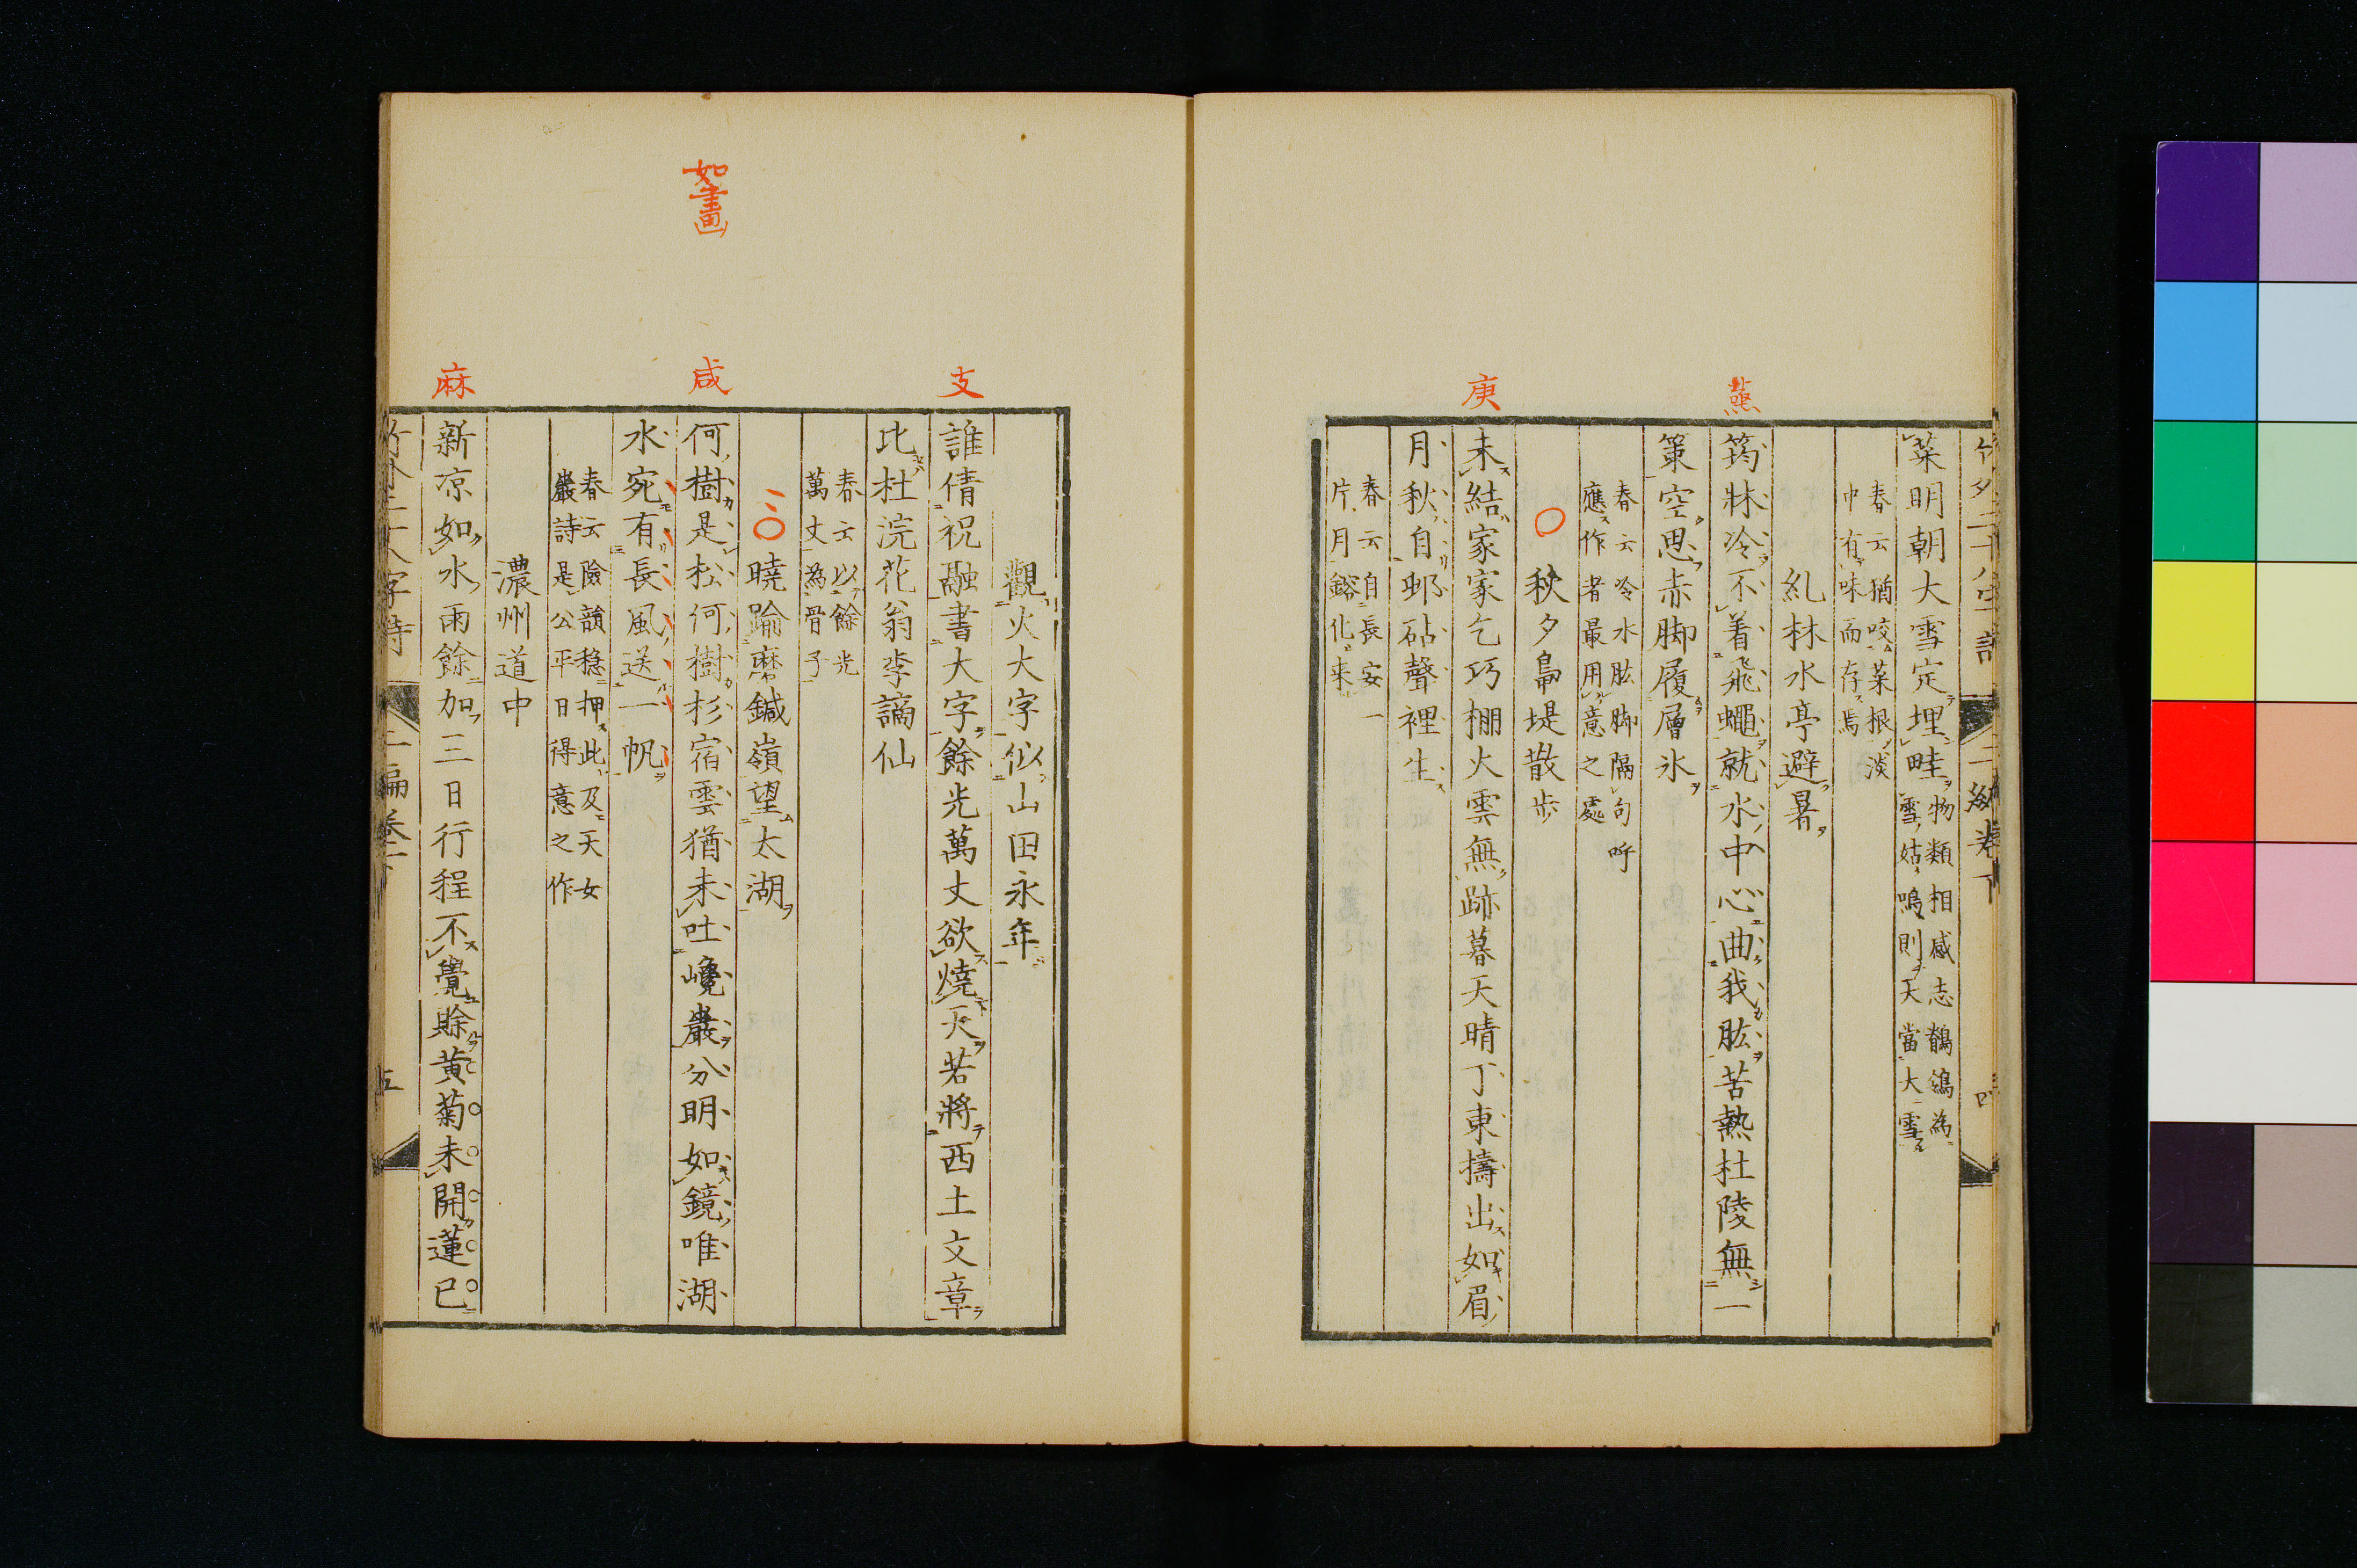 菜明朝大雪定埋畦
物類相感志鶺鴒為
雪姑鳴則天當大雪
春云猶咬菜根淡
中有味而存焉
糺林水亭避暑
蒸
筠牀冷不着飛蠅就水中心曲我肱苦熱杜陵無一
策空思赤脚履層氷
春云冷水肱脚隔句呼
應作者最用意之處
秋夕鳧堤散步
庚
未結家家乞巧棚火雲無跡暮天晴丁東擣出如眉
月秋自郷砧聲裡生
春云自長安一
片月鎔化来
觀火大字似山田永年
支
誰倩祝融書大字餘光萬丈欲燒天若將西土文章
比杜浣花翁李謫仙
春云以餘光
萬丈為骨子
曉踰磨鍼嶺望太湖
如畫
咸
何樹是松何樹杉宿雲猶未吐巉巖分明如鏡唯湖
水宛有長風送一帆
春云險韻穏押此及天女
巖詩是公平日得意之作
濃州道中
麻
新凉如水雨餘加三日行程不覺賖黄菊未開蓮已
二編卷下
五